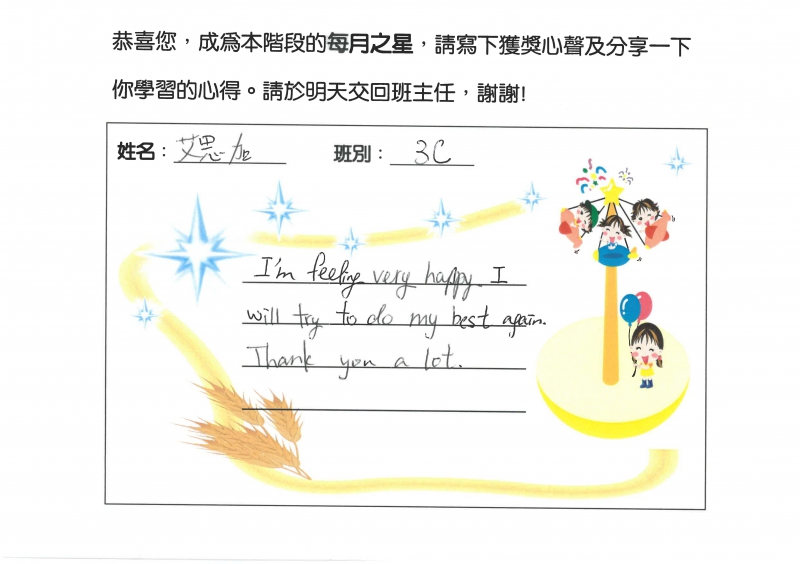 恭喜您，成為本階段的每月之星，請寫下獲獎心聲及分享一下
你學習的心得。請於明天交回班主任，謝謝!
姓名：艾思加 班別：3C
I'm feeling very happy. I
will try to do my best again.
Thank you a lot.